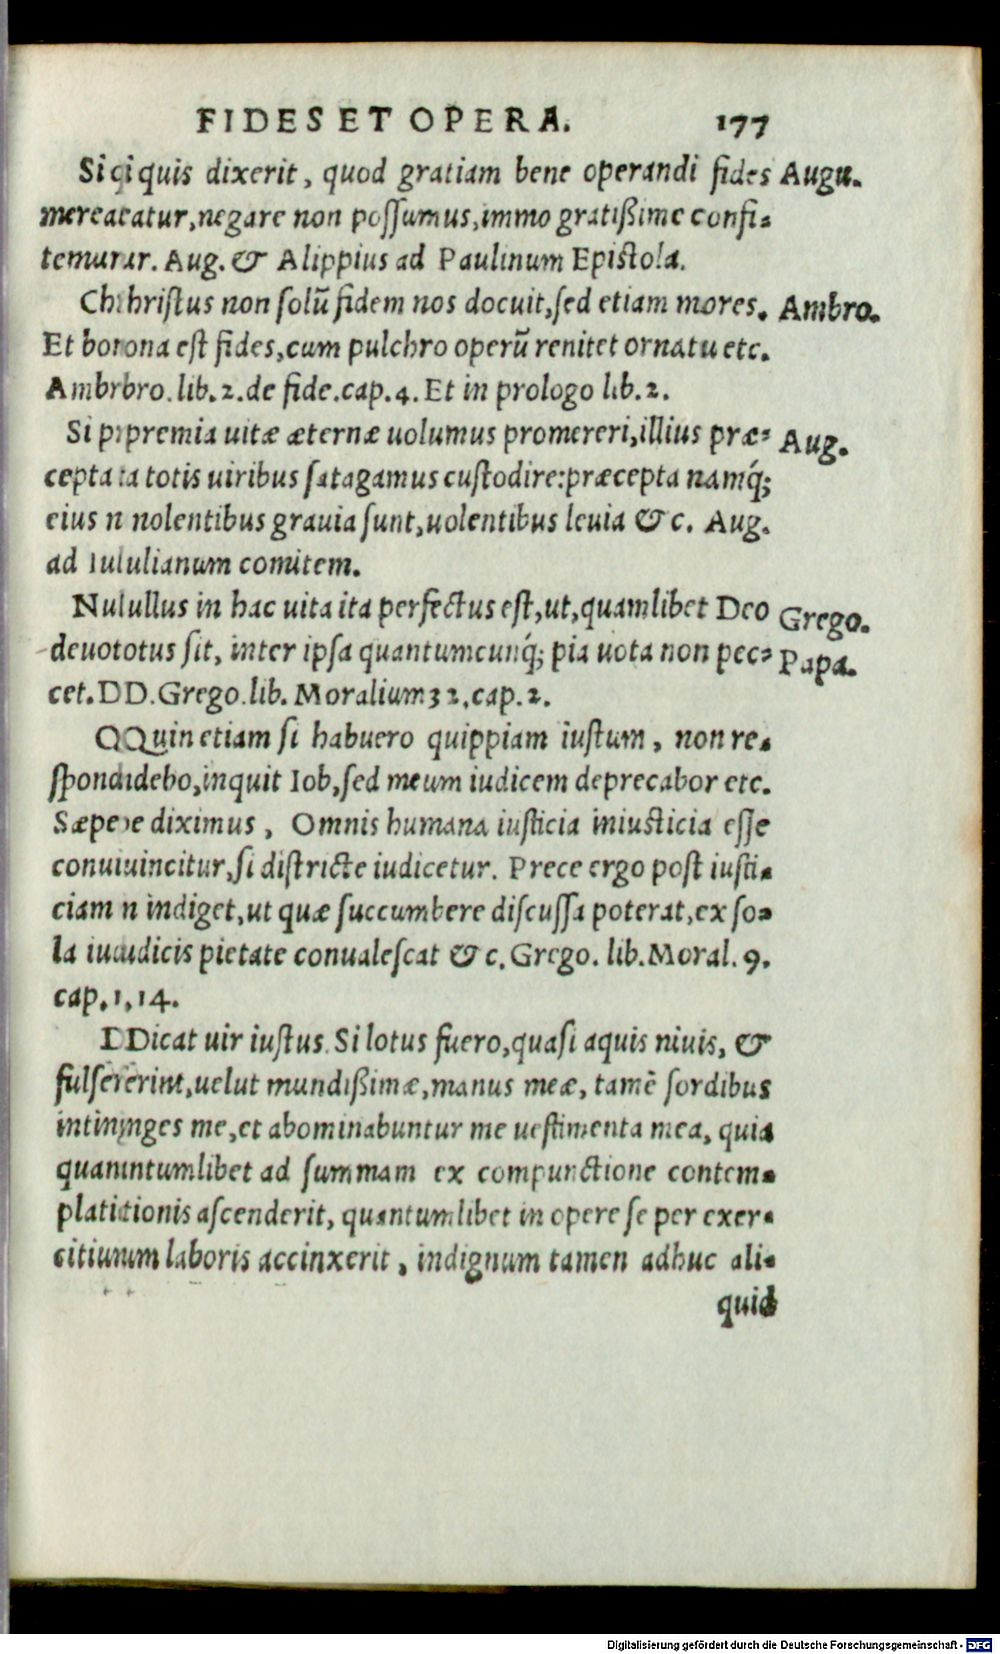 FIDES ET OPERA. 177
Si quis dixerit, quod gratiam bene operandi fides Augu.
mereatur, negare non possumus, immo gratißime confi-
temur. Aug. & Alippius ad Paulinum Epistola.
Christus non solū fidem nos docuit, sed etiam mores. Ambro.
Et bona est fides, cum pulchro operū renitet ornatu etc.
Ambro. lib. 2. de fide. cap. 4. Et in prologo lib. 2.
Si premia uitæ æternæ uolumus promereri, illius præ- Aug.
cepta totis uiribus satagamus custodire: præcepta namq́;
eius nolentibus grauia sunt, uolentibus leuia & c. Aug.
ad Iulianum comitem.
Nullus in hac uita ita perfectus est, ut, quamlibet Deo Grego.
deuotus sit, inter ipsa quantumcunq́; pia uota non pec- Papa.
cet. D. Grego. lib. Moralium 32. cap. 2.
Quin etiam si habuero quippiam iustum, non re-
spondebo, inquit Iob, sed meum iudicem deprecabor etc.
Sæpe diximus, Omnis humana iusticia iniusticia esse
conuincitur, si districte iudicetur. Prece ergo post iusti-
ciam indiget, ut quæ succumbere discussa poterat, ex so-
la iudicis pietate conualescat & c. Grego. lib. Moral. 9.
cap. 14.
Dicat uir iustus. Si lotus fuero, quasi aquis niuis, &
fulserint, uelut mundißimæ, manus meæ, tamē sordibus
intinges me, et abominabuntur me uestimenta mea, quia
quantumlibet ad summam ex compunctione contem-
plationis ascenderit, quantumlibet in opere se per exer-
citium laboris accinxerit, indignum tamen adhuc ali-
quid
Digitalisierung gefördert durch die Deutsche Forschungsgemeinschaft - DFG